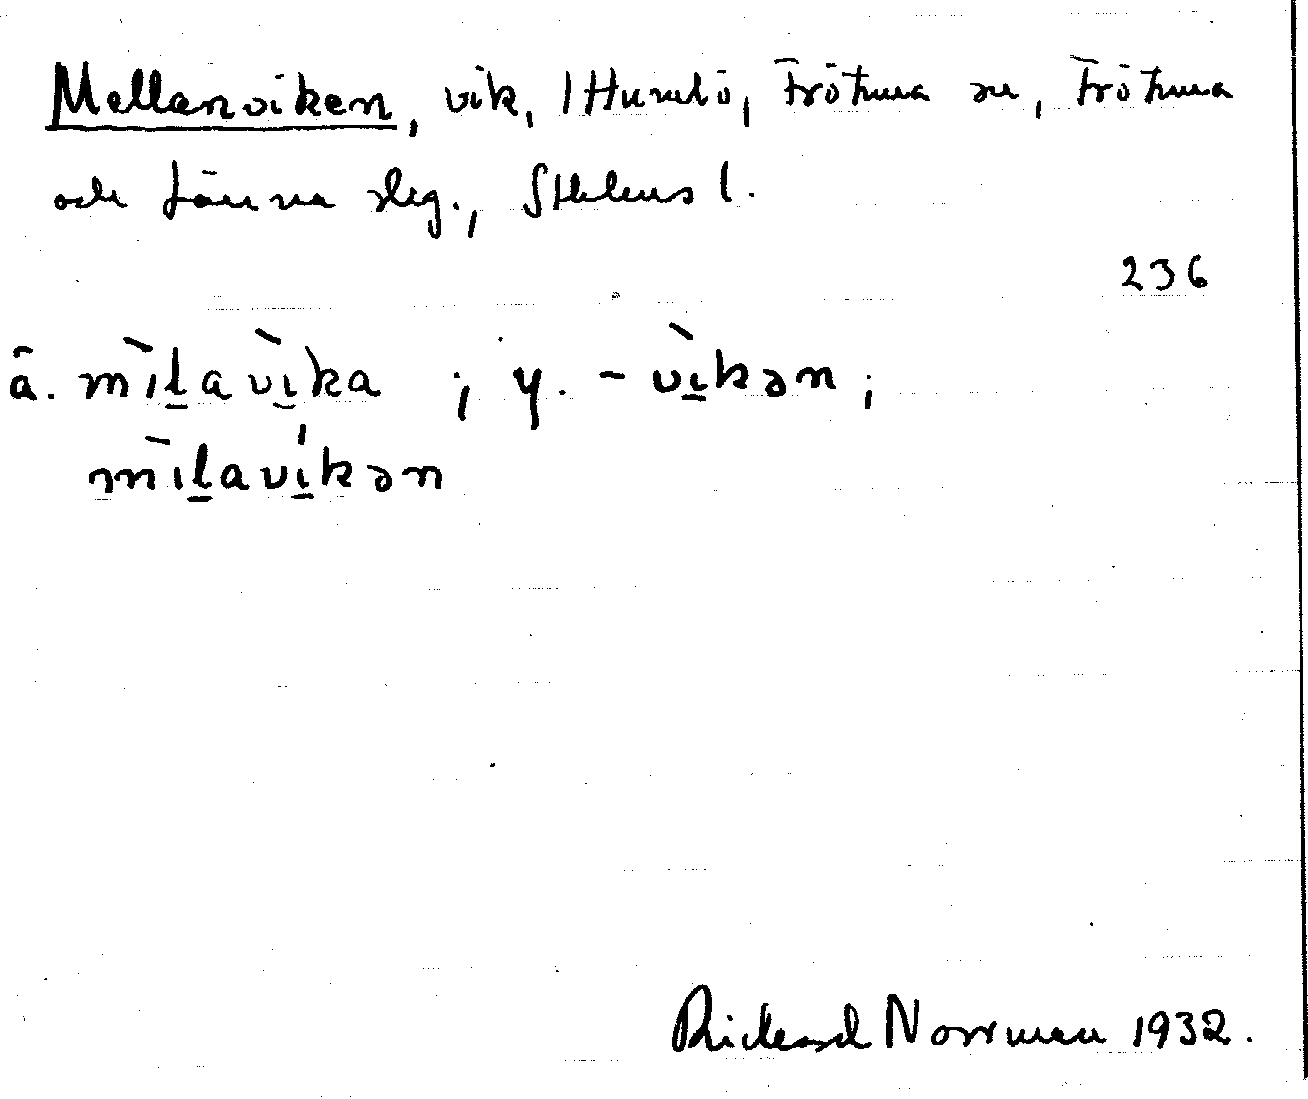 Mellanviken, vik, 1 Humlö, Frötuna sn, Frötuna
och Länna slg., Sthlms l.
236
ä. mìl̠avì̠ka ; y. -vì̠kən ;
mìl̠aví̠kən
Rickard Norrman 1932.